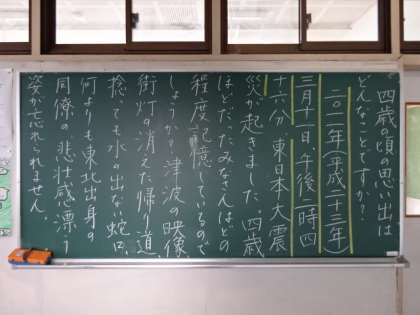 四歳の頃の思い出は
どんなことですか？
二〇一一年(平成二十三年)
三月十一日、午後二時四
十六分、東日本大震
災が起きました。四歳
ほどだったみなさんはどの
程度記憶しているので
しょうか？津波の映像、
街灯の消えた帰り道、
捻っても水の出ない蛇口、
何よりも東北出身の
同僚の悲壮感漂う
姿が忘れられません。